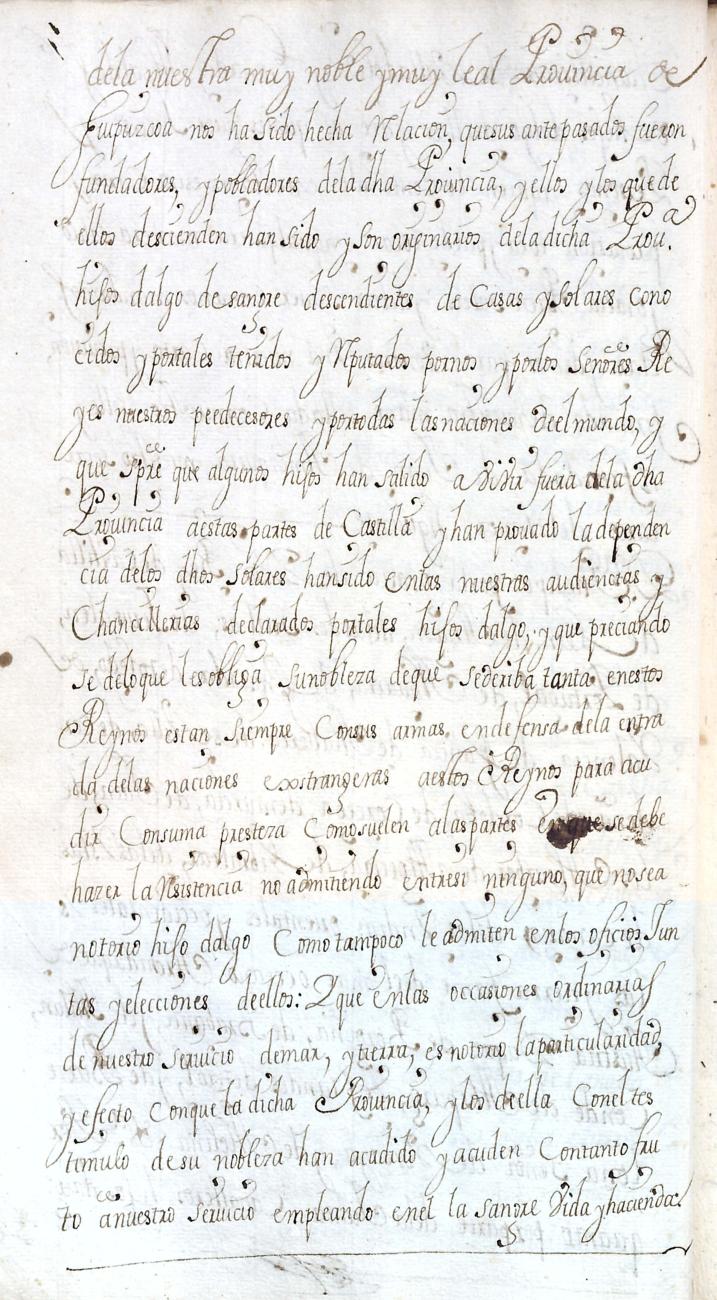 dela nuestra muy noble y muy leal Provincia de
Guipuzcoa nos ha sido hecha Relacion, quesus antepasados fueron
fundadores, y pobladores dela dha Provincia, y ellos y los que de
ellos descienden han sido y son originarios dela dicha Prou.ª
hijos dalgo de sangre descendientes de Casas y solares cono
cidos y portales tenidos y Reputados pornos y porlos Señores Re
yes nuestros peedecesores y portodas las naciones deel mundo, y
que spre que algunos hijos han salido a vivir fuera dela dha
Provincia aestas partes de Castilla y han provado la dependen
cia delos dhos solares han sido enlas nuestras audiencias y
Chancillerias declarados portales hijos dalgo, y que preciando
se deloque les obliga su nobleza deque se deriba tanta enestos
Reynos estan siempre Consus armas en defensa dela entra
da delas naciones exstrangeras aestos Reynos para acu
dir Consuma presteza Como suelen alas partes enque se debe
hazer la Resistencia no admitiendo entresi ninguno, que no sea
notorio hijo dalgo Como tampoco le admiten enlos oficios Jun
tas y elecciones deellos: Y que enlas occasiones ordinarias
de nuestro servicio demar, y tierra, es notorio la particularidad,
y efecto Conque la dicha Provincia, y los deella Coneltes
timulo de su nobleza han acudido y acuden Contanto fru
to anuestro servicio empleando enel la sangre vida y hacienda: